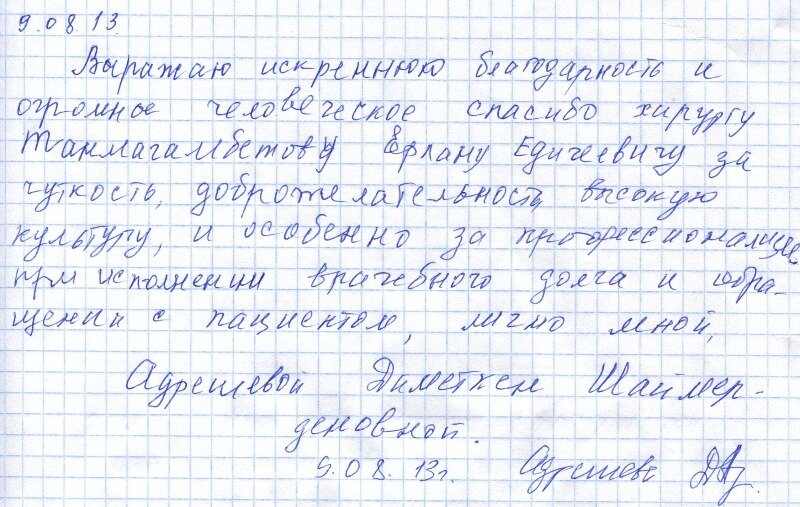 9.08.13.
Выражаю искреннюю благодарность и
огромное человеческое спасибо хирургу
Танмагамбетову Ерлану Едигеевичу за
чуткость, доброжелательность, высокую
культуру, и особенно за профессионализм
при исполнении врачебного долга и обра-
щении с пациентом, лично мной,
Адрешевой Диметкен Шаймер-
деновной.
9.08.13г. Адрешева